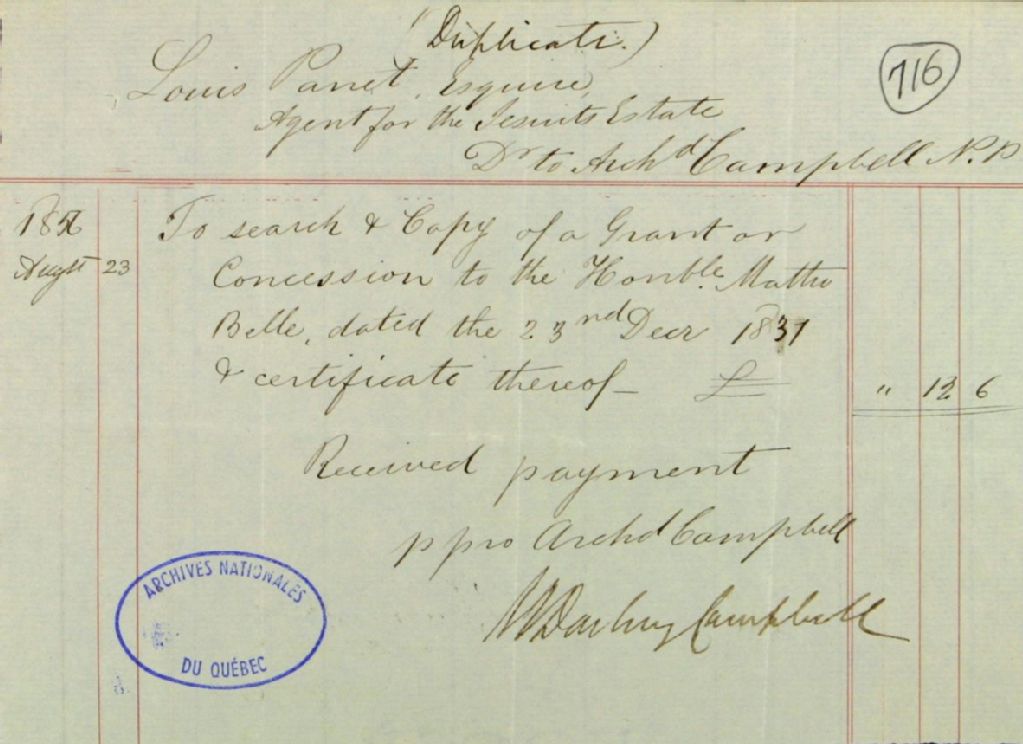 (Duplicate.)
716
Louis Panet, Esquire,
Agent for the Jesuits Estate
Dr to Archd Campbell N.P.
To search & Copy of a Grant or
Augst 23
Concession to the Honble. Mathew
Bell, dated the 23nd Decr 1831
& certificate thereof £ " 12 6
Received payment
p pro Archd Campbell
W Darling Campbell
ARCHIVES NATIONALES
DU QUÉBEC